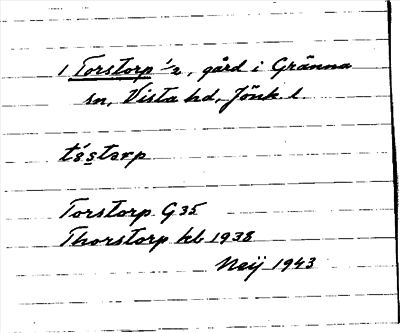 1 Torstorp 1/2, gård i Gränna
sn, Vista hd, Jönk. l.
tóstorp
Torstorp G 35
Thorstorp kb 1938
Neij 1943